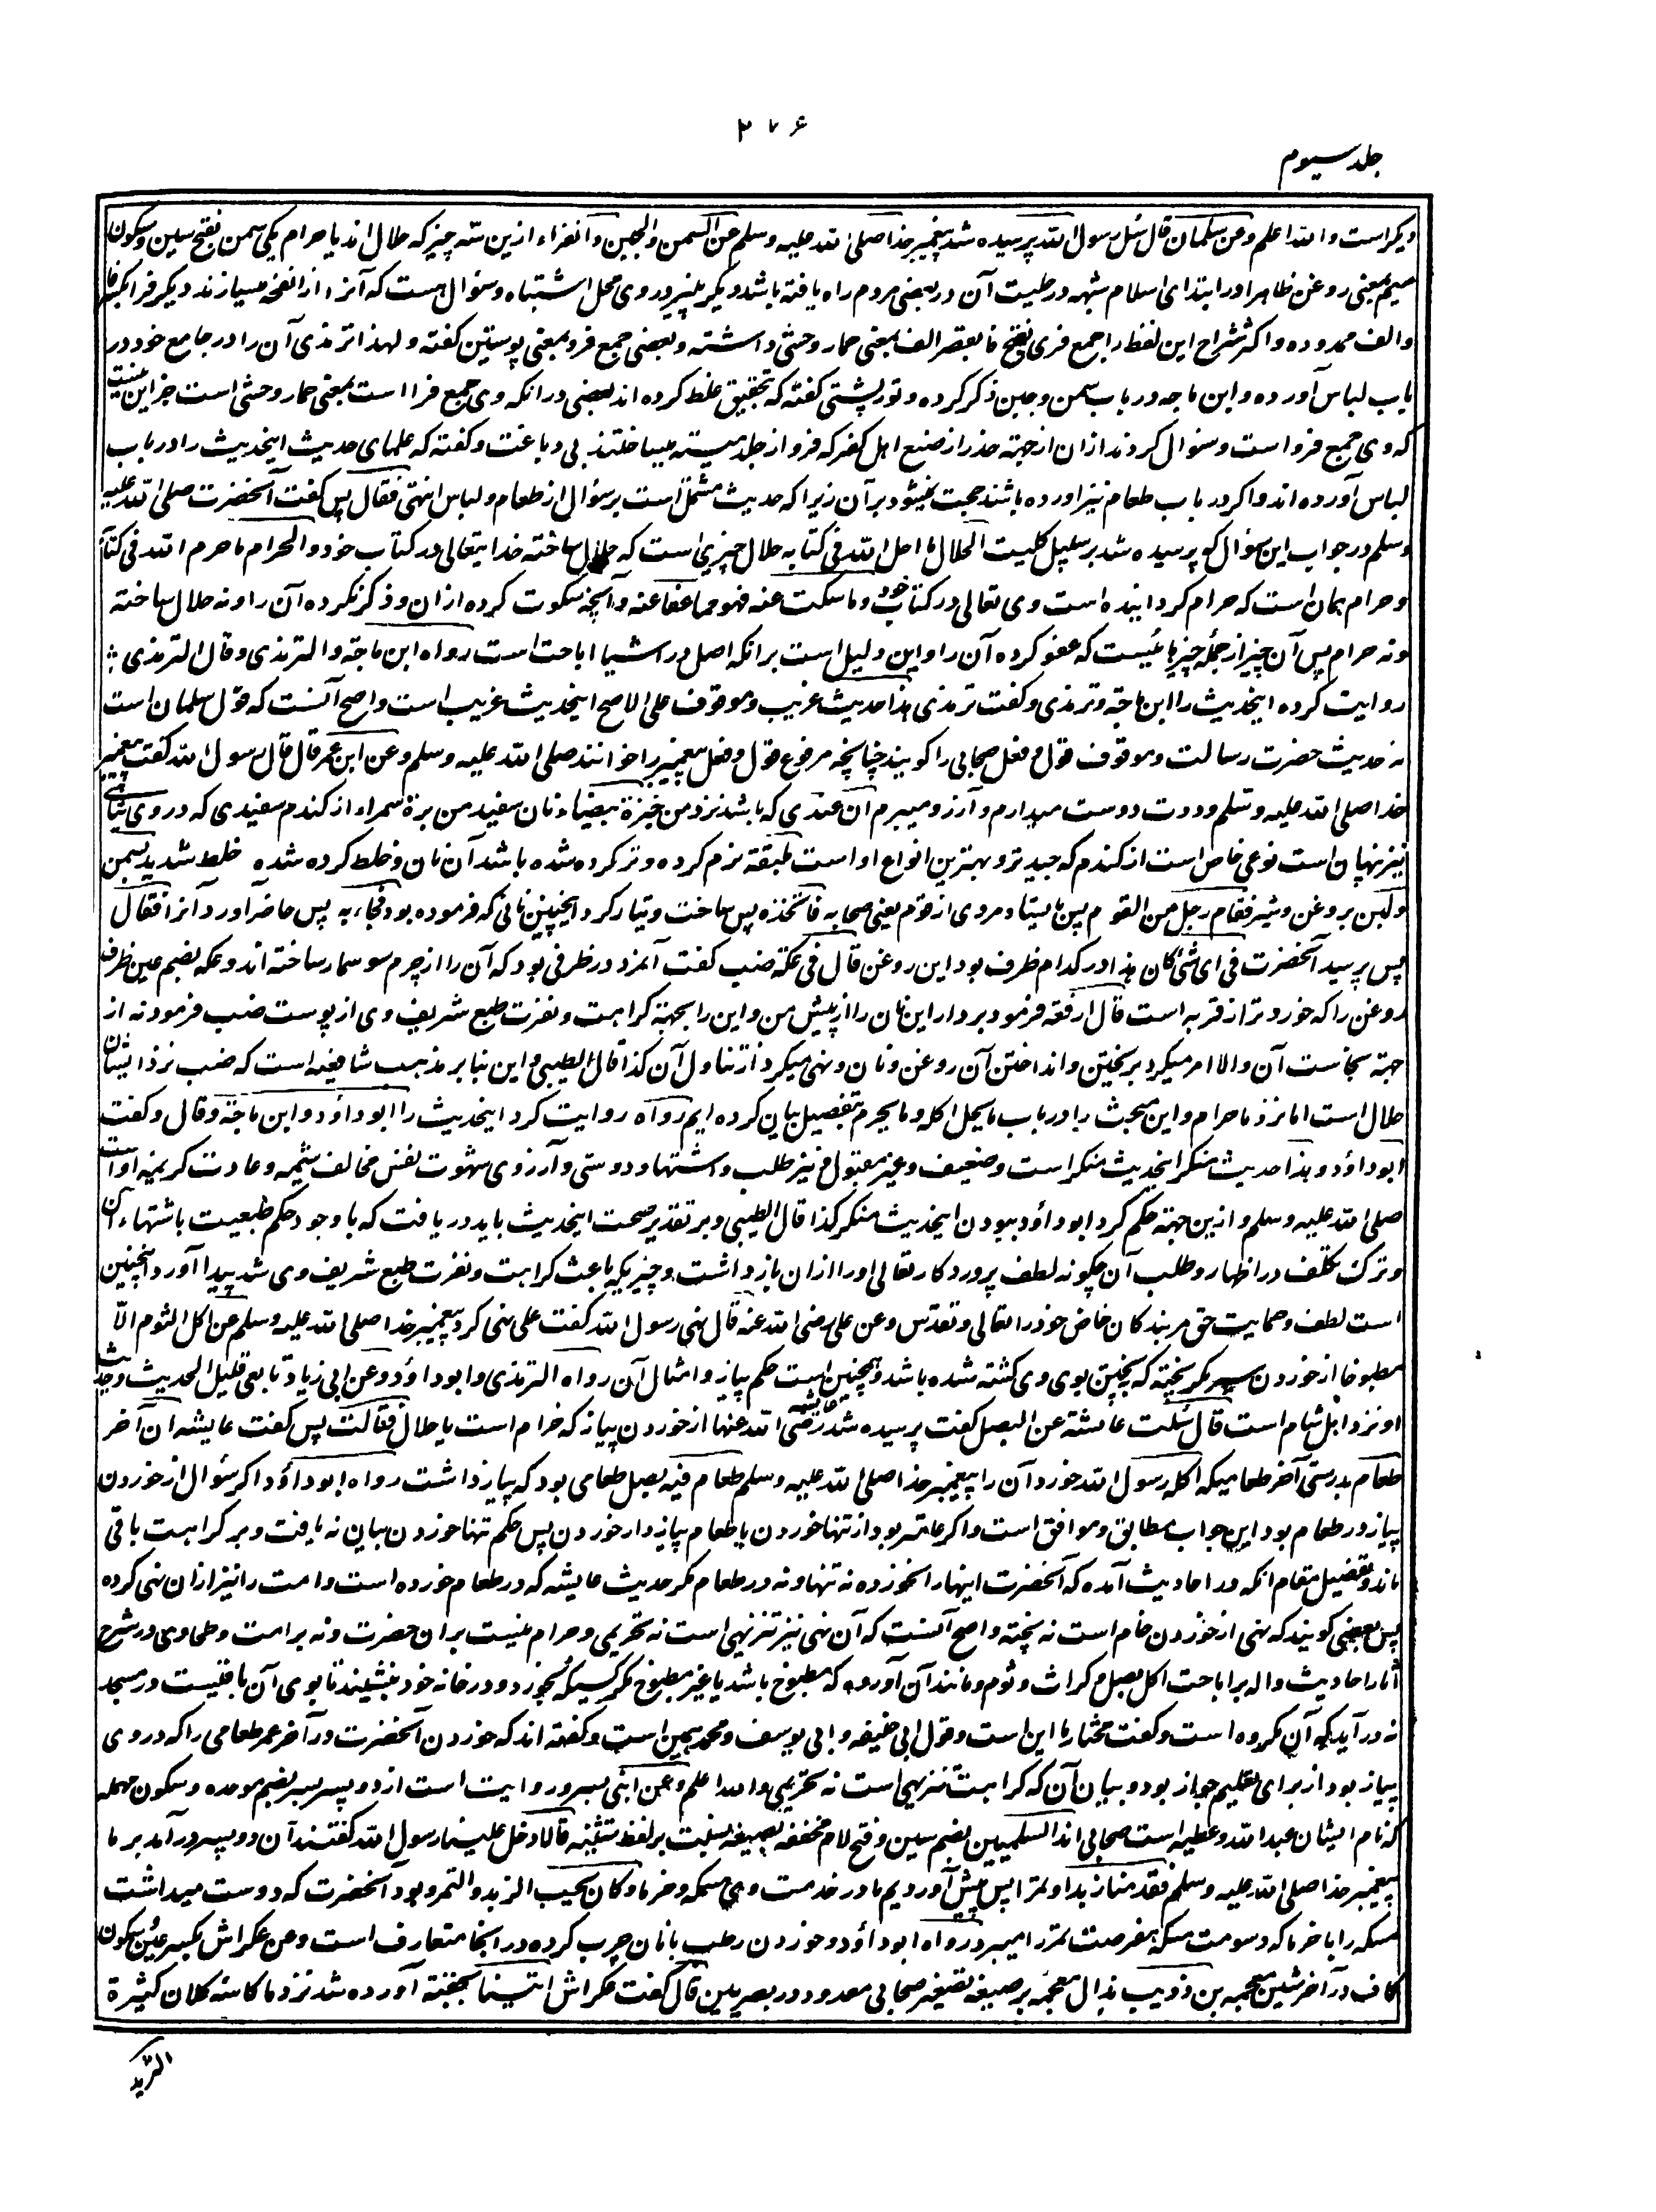 ۲۷۶
جلد سیوم
دیگر است والله اعلم وعن سلمان قال سئل رسول الله پرسیده شد پیغمبر خدا صلی الله علیه وسلم عن السمن والجبن والفراء ازین سه چیز که حلال اند یا حرام یکی سمن بفتح سین وسکون
میم بمعنی روغن ظاهرا در ابتدای اسلام شبهه در حلیت آن در بعضی مردم راه یافته باشد ودیگر پنیر ودر وی محل اشتباه وسئوال هست که آنرا از انفخه میسازند ودیگر فرا بکسر فا
والف ممدوده واکثر شراح این لفظ را جمع فری بفتح فا بقصر الف بمعنی حمار وحشی داشته وبعضی جمع فرو بمعنی پوستین گفته ولهذا ترمذی آن را در جامع خود در
باب لباس آورده وابن ماجه در باب سمن وجبن ذکر کرده وتورپشتی گفته که تحقیق غلط کرده اند بعضی در انکه وی جمع فرا است بمعنی حمار وحشی است جز این نیست
که وی جمع فرو است وسئوال کردند ازان از جهة حذر از صنع اهل کفر که فرو از جلد میته میساختند بی دباغت وگفته که علمای حدیث اینحدیث را در باب
لباس آورده اند واگر در باب طعام نیز آورده باشند حجت نمیشود بر آن زیرا که حدیث مشتمل است بر سؤال از طعام ولباس انتهی فقال پس گفت آنحضرت صلی الله علیه
وسلم در جواب این سؤال که پرسیده شد بر سبیل کلیت الحلال ما احل الله فی کتابه حلال چیزی است که حلال ساخته خدایتعالی در کتاب خود والحرام ما حرم الله فی کتابه
وحرام همان است که حرام گردانیده است وی تعالی در کتاب خود وما سکت عنه فهو مما عفا عنه وآنچه سکوت کرده ازان وذکر نکرده آن را ونه حلال ساخته
ونه حرام پس آن چیز از جمله چیزهائیست که عفو کرده آن را واین دلیل است بر انکه اصل در اشیا اباحت است رواه ابن ماجة والترمذی وقال الترمذی
روایت کرده اینحدیث را ابن ماجة وترمذی وگفت ترمذی هذا حدیث غریب وموقوف علی الاصح اینحدیث غریب است واصح آنست که قول سلمان است
نه حدیث حضرت رسالت وموقوف قول وفعل صحابی را گویند چنانچه مرفوع قول وفعل پیغمبر را خوانند صلی الله علیه وسلم وعن ابن عمر قال قال رسول الله گفت پیغمبر
خدا صلی الله علیه وسلم وددت دوست میدارم وآرزو میبرم ان عندی که باشد نزد من خبزة بیضاء نان سفید من برة سمراء از گندم سفیدی که در وی سیاهی
نیز نهان است نوعی خاص است از گندم که جیدتر وبهترین انواع او است ملبقة نرم کرده وتر کرده شده باشد آن نان وخلط کرده شده خلط شدید بسمن
ولبن بروغن وشیر فقام رجل من القوم پس بایستاد مردی از قوم یعنی صحابه فاتخذه پس ساخت وتیار کرد اینچنین نانی که فرموده بود فجاء به پس حاضر آورد آنرا فقال
پس پرسید آنحضرت فی ای شئ کان هذا در کدام ظرف بود این روغن قال فی عکة ضب گفت آنمرد در ظرفی بود که آن را از چرم سوسمار ساخته اند وعکه بضم عین ظرف
روغن را که خوردتر از قربه است قال ارفعه فرمود بردار این نان را از پیش من واین را بجهة کراهت ونفرت طبع شریف وی از پوست ضب فرمود نه از
جهة نجاست آن والا امر میکرد بریختن وانداختن آن روغن ونان ونهی میکرد از تناول آن کذا قال الطیبی واین بنا بر مذهب شافعیه است که ضب نزد ایشان
حلال است اما نزد ما حرام واین مبحث را در باب ما یحل اکله وما یحرم بتفصیل بیان کرده ایم رواه روایت کرد اینحدیث را ابو داؤد وابن ماجة وقال وگفت
ابو داؤد وهذا حدیث منکر اینحدیث منکر است وضعیف وغیر مقبول ونیز طلب واشتها ودوستی وآرزوی شهوت نفس مخالف شیمه وعادت کریمه او است
صلی الله علیه وسلم وازین جهة حکم کرد ابو داؤد ببودن اینحدیث منکر کذا قال الطیبی وبر تقدیر صحت اینحدیث باید دریافت که با وجود حکم طبعیت باشتهاء آن
وترک تکلف در اظهار وطلب آن چگونه لطف پروردگار تعالی او را ازان باز داشت وچیزیکه باعث کراهت ونفرت طبع شریف وی شد پیدا آورد اینچنین
است لطف وحمایت حق مر بندگان خاص خود را تعالی وتقدس وعن علی رضی الله عنه قال نهی رسول الله گفت علی نهی کرد پیغمبر خدا صلی الله علیه وسلم عن اکل الثوم الا
مطبوخا از خوردن سیر مگر پخته که بپختن بوی وی کشته شده باشد وهمچنین است حکم پیاز وامثال آن رواه الترمذی وابو داؤد وعن ابی زیاد تابعی قلیل الحدیث وحدیث
او نزد اهل شام است قال سئلت عایشة عن البصل گفت پرسیده شد عایشه رضی الله عنها از خوردن پیاز که حرام است یا حلال فقالت پس گفت عایشه ان آخر
طعام بدرستی آخر طعامیکه اکله رسول الله خورد آن را پیغمبر خدا صلی الله علیه وسلم طعام فیه بصل طعامی بود که پیاز داشت رواه ابو داؤد اگر سؤال از خوردن
پیاز در طعام بود این جواب مطابق وموافق است واگر عامتر بود از تنها خوردن یا طعام پیازدار خوردن پس حکم تنها خوردن بیان نه یافت وبر کراهت باقی
ماند وتفصیل مقام انکه در احادیث آمده که آنحضرت اینها را نخورده نه تنها ونه در طعام مگر حدیث عایشه که در طعام خورده است وامت را نیز ازان نهی کرده
پس بعضی گویند که نهی از خوردن خام است نه پخته واصح آنست که آن نهی نیز تنزیهی است نه تحریمی وحرام نیست بران حضرت ونه بر امت وطحاوی در شرح
آثار احادیث داله بر اباحت اکل بصل وکراث وثوم ومانند آن آورده که مطبوخ باشد یا غیر مطبوخ مگر کسیکه بخورد ودر خانه خود بنشیند تا بوی آن باقیست در مسجد
نه در آید که آن مکروه است وگفت مختار ما این است وقول ابی حنیفه وابی یوسف ومحمد همین است وگفته اند که خوردن آنحضرت در آخر عمر طعامی را که در وی
پیاز بود از برای تعلیم جواز بود وبیان آن که کراهت تنزیهی است نه تحریمی والله اعلم وعن ابنی بسر وروایت است از دو پسر بسر بضم موحده وسکون مهمله
که نام ایشان عبد الله وعطیه است صحابی اند السلمیین بضم سین وفتح لام مخففه بصیغه نسبت بر لفظ تثنیه قالا دخل علینا رسول الله گفتند آن دو پسر در آمد بر ما
پیغمبر خدا صلی الله علیه وسلم فقدمنا زبدا وتمرا پس پیش آوردیم ما در خدمت وی مسکه وخرما وکان یحب الزبد والتمر وبود آنحضرت که دوست میداشت
مسکه را با خرما که دسومت مسکه مضرت تمر را میبرد رواه ابو داؤد وخوردن رطب با نان چرب کرده در آنجا متعارف است وعن عکراش بکسر عین وسکون
کاف در آخر شین معجمه بن ذویب بذال معجمه بر صیغه تصغیر صحابی معدود در بصریین قال گفت عکراش اتینا بجفنة آورده شد نزد ما کاسه کلان کثیرة
الثرید